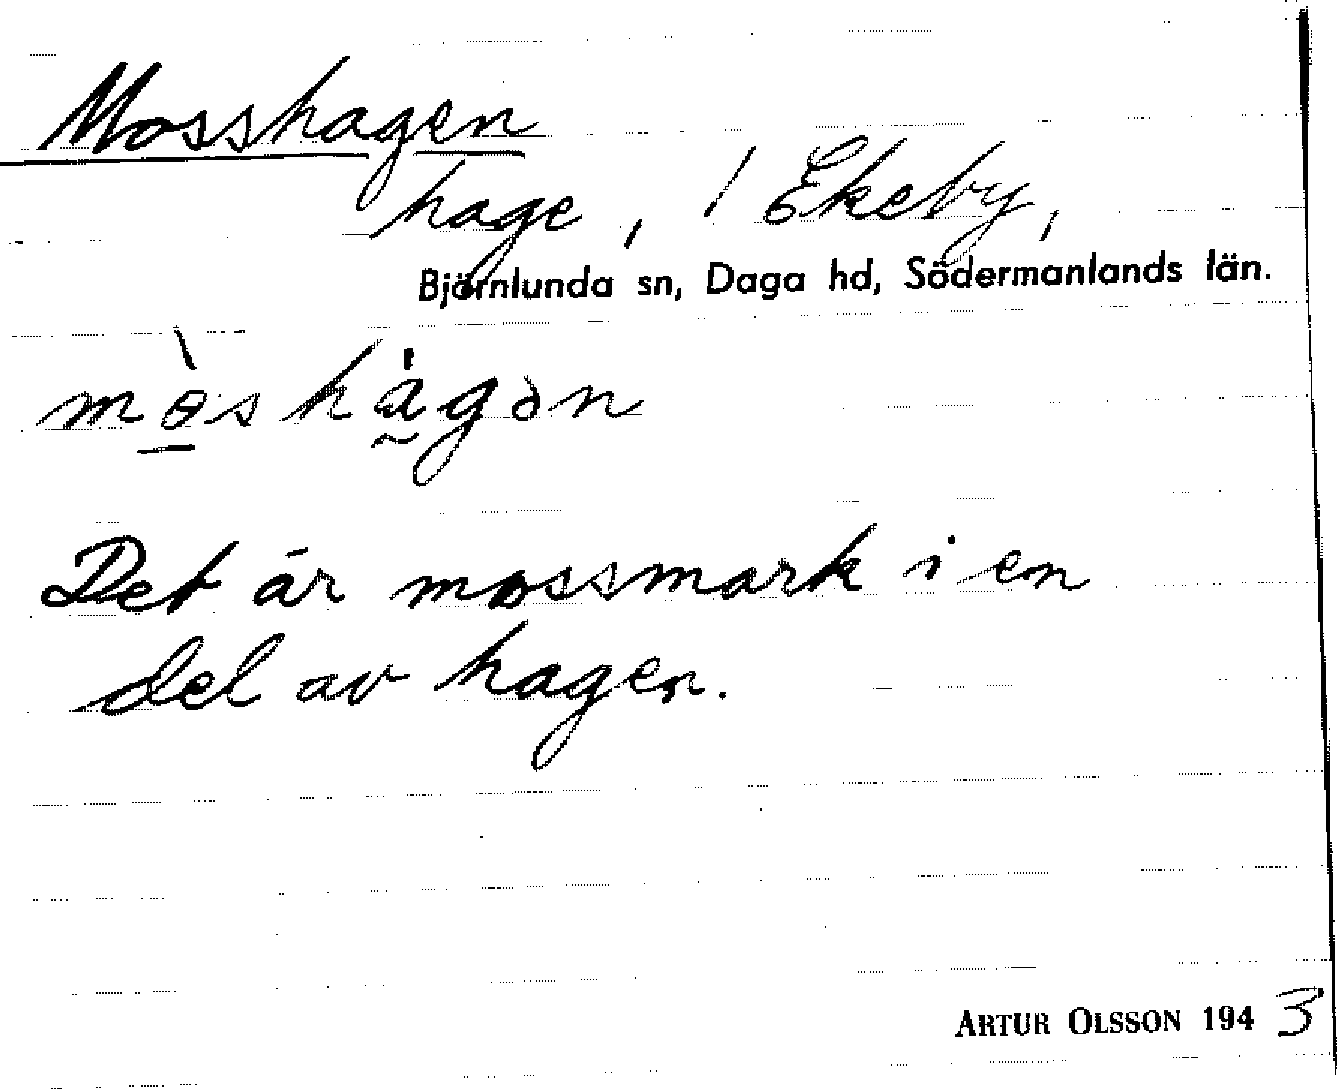 Mosshagen
hage, / Ekeby,
Björnlunda sn, Daga hd, Södermanlands län.
mòs̠hȧ̰gən
Det är mossmark i en
del av hagen.
ARTUR OLSSON 1943